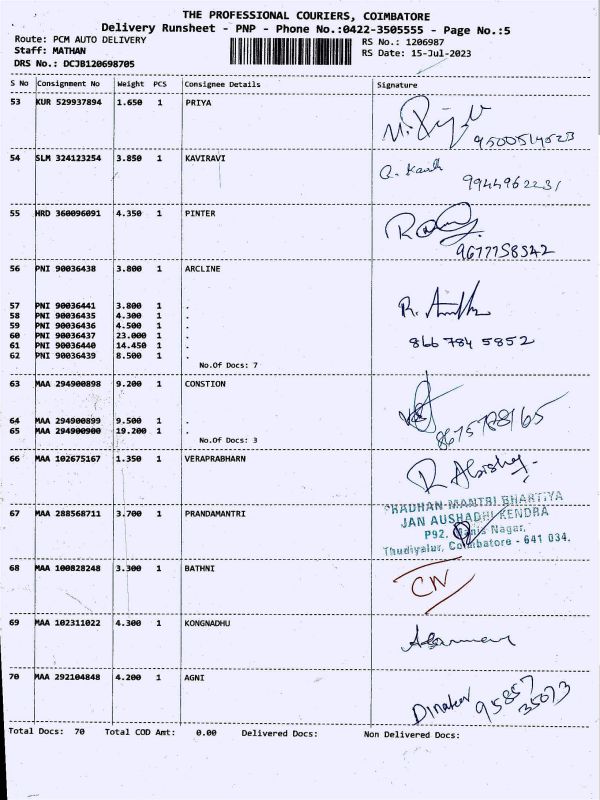 THE PROFESSIONAL COURIERS, COIMBATORE
Delivery Runsheet - PNP - Phone No.:0422-3505555 - Page No.:5
Route: PCM AUTO DELIVERY RS No.: 1206987
Staff: MATHAN RS Date: 15-Jul-2023
DRS No.: DCJB120698705
S No Consignment No Weight PCS Consignee Details Signature
53 KUR 529937894 1.650 1 PRIYA
9500514623
54 SLM 324123254 3.850 1 KAVIRAVI
9944962231
55 HRD 360096091 4.350 1 PINTER
9677758542
56 PNI 90036438 3.800 1 ARCLINE
57 PNI 90036441 3.800 1 .
58 PNI 90036435 4.300 1 .
59 PNI 90036436 4.500 1 .
60 PNI 90036437 23.000 1 .
61 PNI 90036440 14.450 1 .
62 PNI 90036439 8.500 1 .
866 784 5852
No.Of Docs: 7
63 MAA 294900898 9.200 1 CONSTION
64 MAA 294900899 9.500 1 .
65 MAA 294900900 19.200 1 .
No.Of Docs: 3
66 MAA 102675167 1.350 1 VERAPRABHARN
67 MAA 288568711 3.700 1 PRANDAMANTRI
PRADHAN MANTRI BHARTIYA
JAN AUSHADHI KENDRA
P92, Nagar,
Thudiyalur, Coimbatore - 641 034.
68 MAA 100828248 3.300 1 BATHNI
CN
69 MAA 102311022 4.300 1 KONGNADHU
70 MAA 292104848 4.200 1 AGNI
Dinakar 95857
35073
Total Docs: 70 Total COD Amt: 0.00 Delivered Docs: Non Delivered Docs: